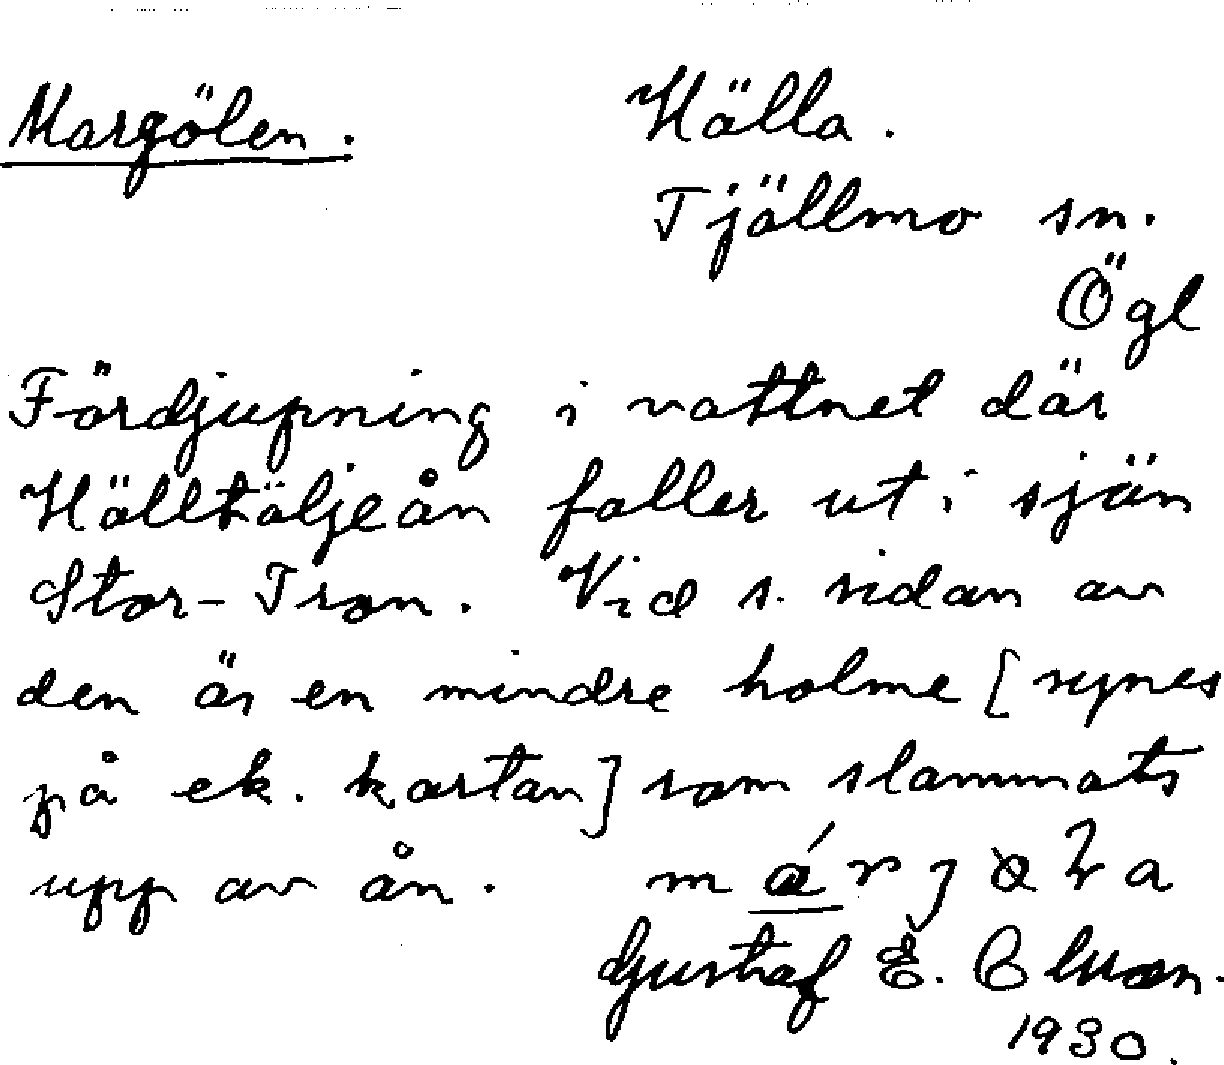 Margölen.
Hälla.
Tjällmo sn.
Ögl
Fördjupning i vattnet där
Hälltäljeån faller ut i sjön
Stor-Tron. Vid s. sidan av
den är en mindre holme [synes
på ek. kartan] som slammats
upp av ån.
Gustaf E.
1930.